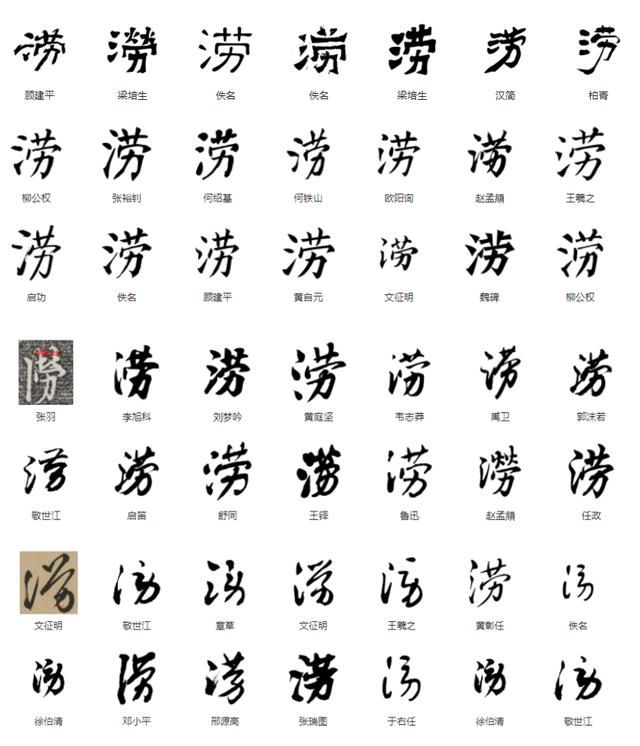 涝 澇 涝 涝 涝 涝 涝
顾建平 梁培生 佚名 佚名 梁培生 汉简 柏青
涝 涝 涝 涝 涝 涝 涝
柳公权 张裕钊 何绍基 何铁山 欧阳询 赵孟頫 王羲之
涝 涝 涝 涝 涝 涝 涝
启功 佚名 顾建平 黄自元 文征明 魏碑 柳公权
澇 涝 涝 涝 涝 涝 涝
张羽 李旭科 刘梦吟 黄庭坚 韦志莽 禹卫 郭沫若
涝 涝 涝 涝 涝 澇 涝
敬世江 启笛 舒同 王铎 鲁迅 赵孟頫 任政
涝 涝 涝 涝 涝 涝 涝
文征明 敬世江 章草 文征明 王羲之 黄彰任 佚名
涝 涝 涝 涝 涝 涝 涝
徐伯清 邓小平 邢源高 张瑞图 于右任 徐伯清 敬世江